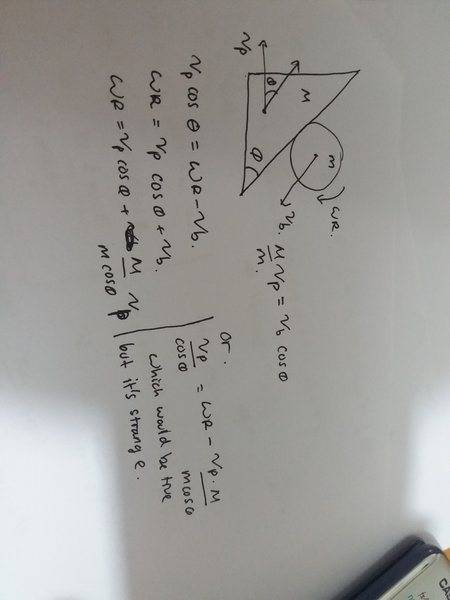 vp
θ
M
m
ωR.
θ
vb.
M/m. vp = vb cosθ
vp cos θ = ωR - vb.
ωR = vp cosθ + vb.
ωR = vp cosθ + M/mcosθ vp
or.
vp/cosθ = ωR - vp.M/mcosθ
which would be true
but it's strange.